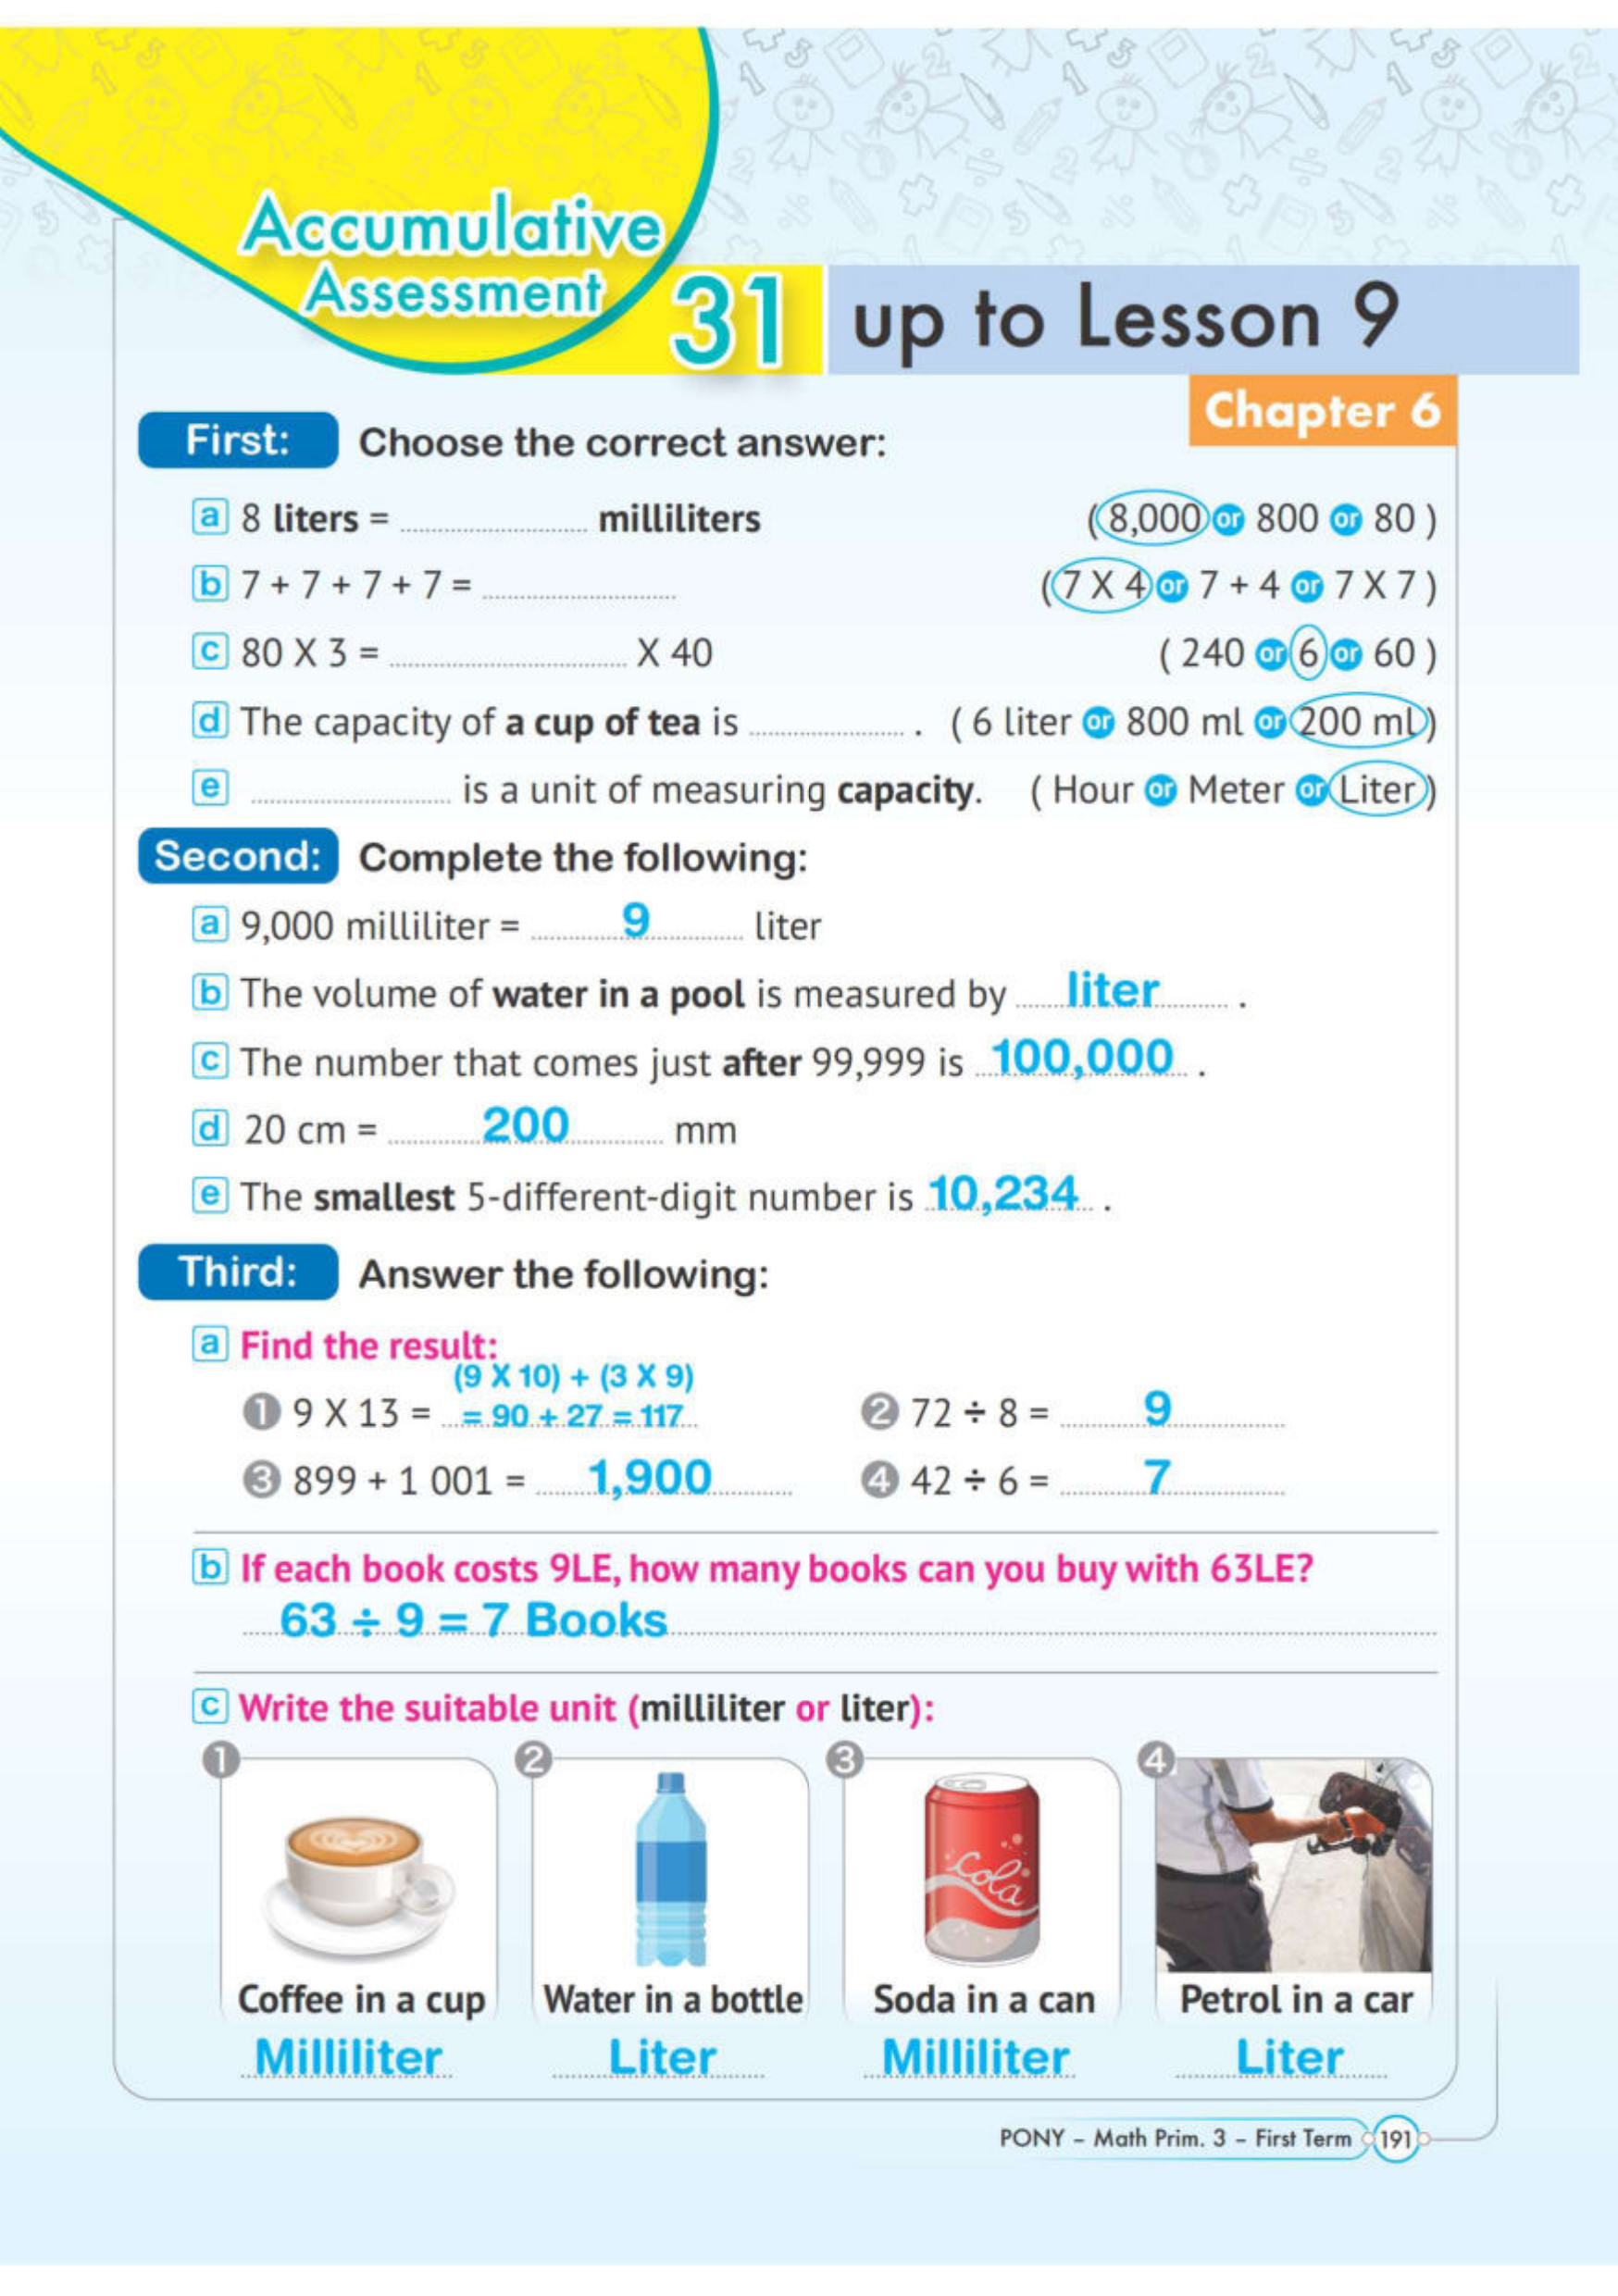 Accumulative
Assessment 31 up to Lesson 9
Chapter 6
First: Choose the correct answer:
a 8 liters = .................... milliliters (8,000 or 800 or 80 )
b 7 + 7 + 7 + 7 = .................... (7 X 4 or 7 + 4 or 7 X 7 )
c 80 X 3 = .................... X 40 ( 240 or 6 or 60 )
d The capacity of a cup of tea is .................... . ( 6 liter or 800 ml or 200 ml )
e .................... is a unit of measuring capacity. ( Hour or Meter or Liter )
Second: Complete the following:
a 9,000 milliliter = 9 liter
b The volume of water in a pool is measured by liter .
c The number that comes just after 99,999 is 100,000 .
d 20 cm = 200 mm
e The smallest 5-different-digit number is 10,234 .
Third: Answer the following:
a Find the result:
(9 X 10) + (3 X 9)
1 9 X 13 = = 90 + 27 = 117 2 72 ÷ 8 = 9
3 899 + 1 001 = 1,900 4 42 ÷ 6 = 7
b If each book costs 9LE, how many books can you buy with 63LE?
63 ÷ 9 = 7 Books
c Write the suitable unit (milliliter or liter):
1 2 3 4
Cola
Coffee in a cup Water in a bottle Soda in a can Petrol in a car
Milliliter Liter Milliliter Liter
PONY – Math Prim. 3 – First Term 191